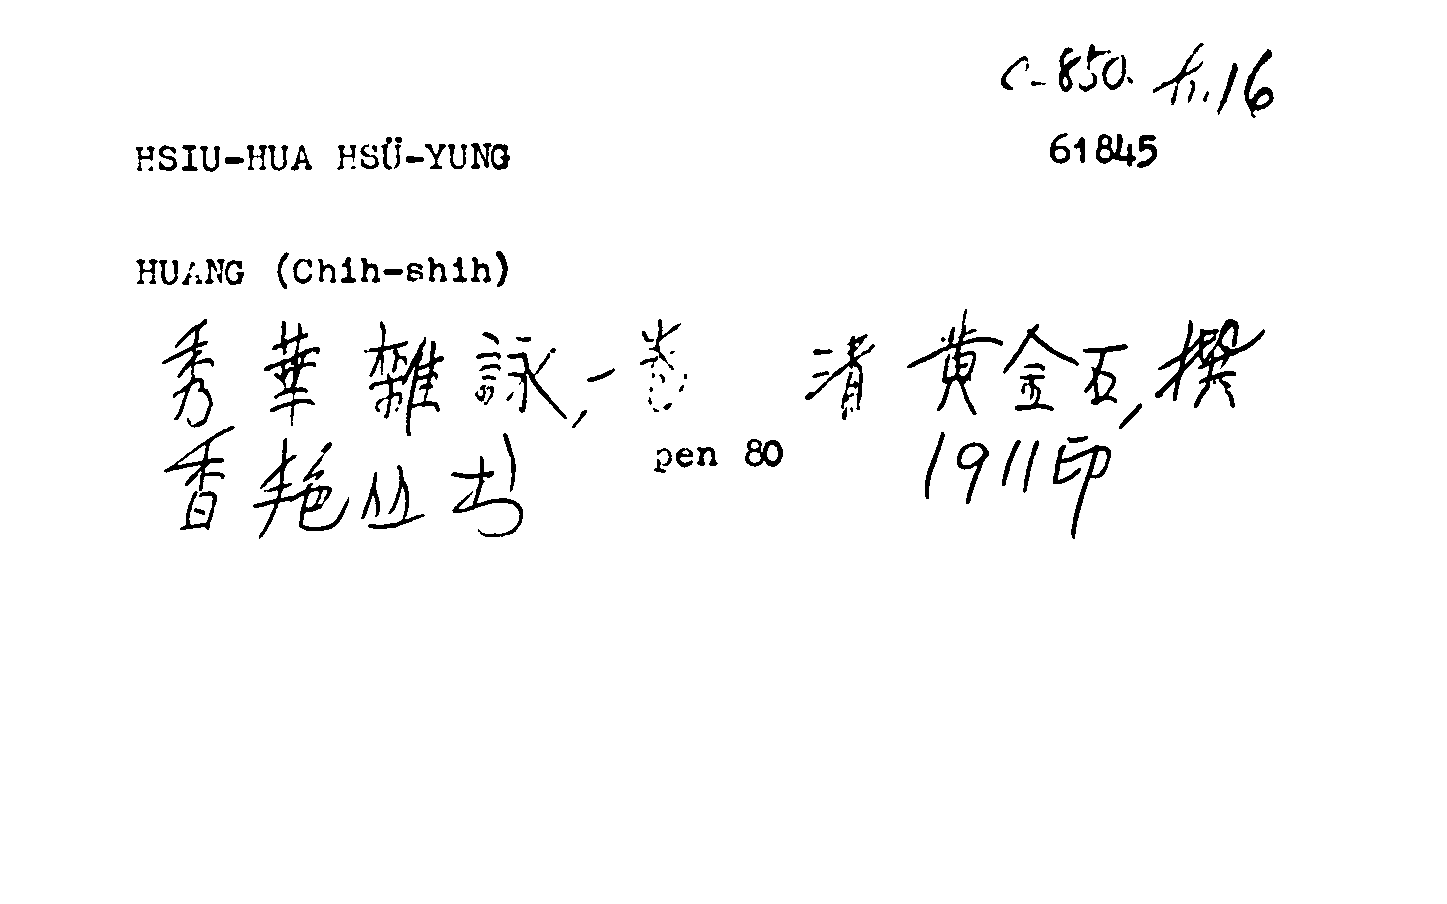 C-850. fi.16
HSIU-HUA HSÜ-YUNG 61845
HUANG (Chih-shih)
秀華雜詠,一卷 清 黃金石,撰
香艳丛书 pen 80 1911印